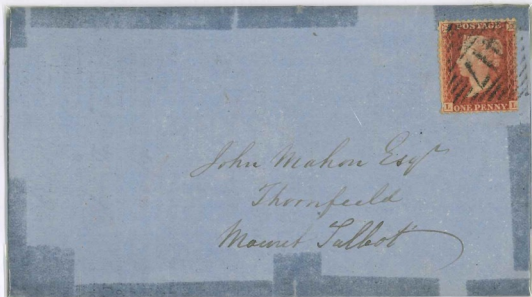 POSTAGE
ONE PENNY
John Mahon Esqr
Thornfield
Mount Talbot